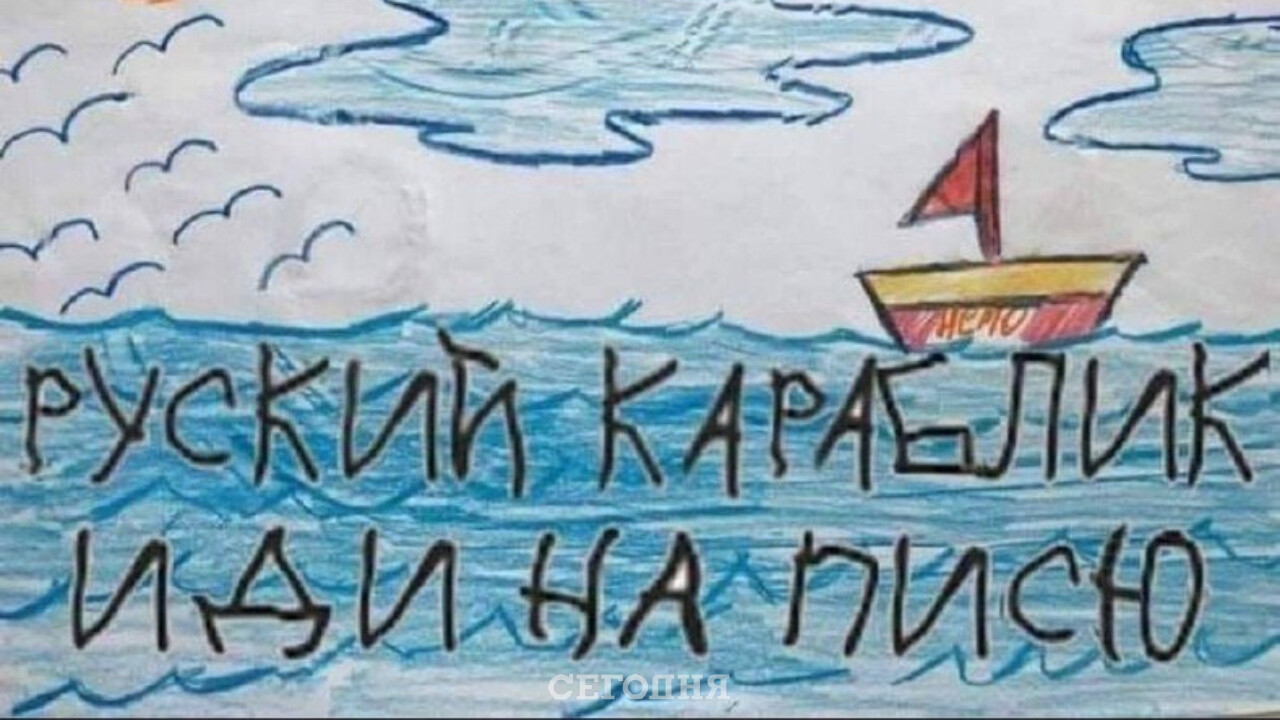 НЕМО
РУСКИЙ КАРАБЛИК
ИДИ НА ПИСЮ
СЕГОДНЯ